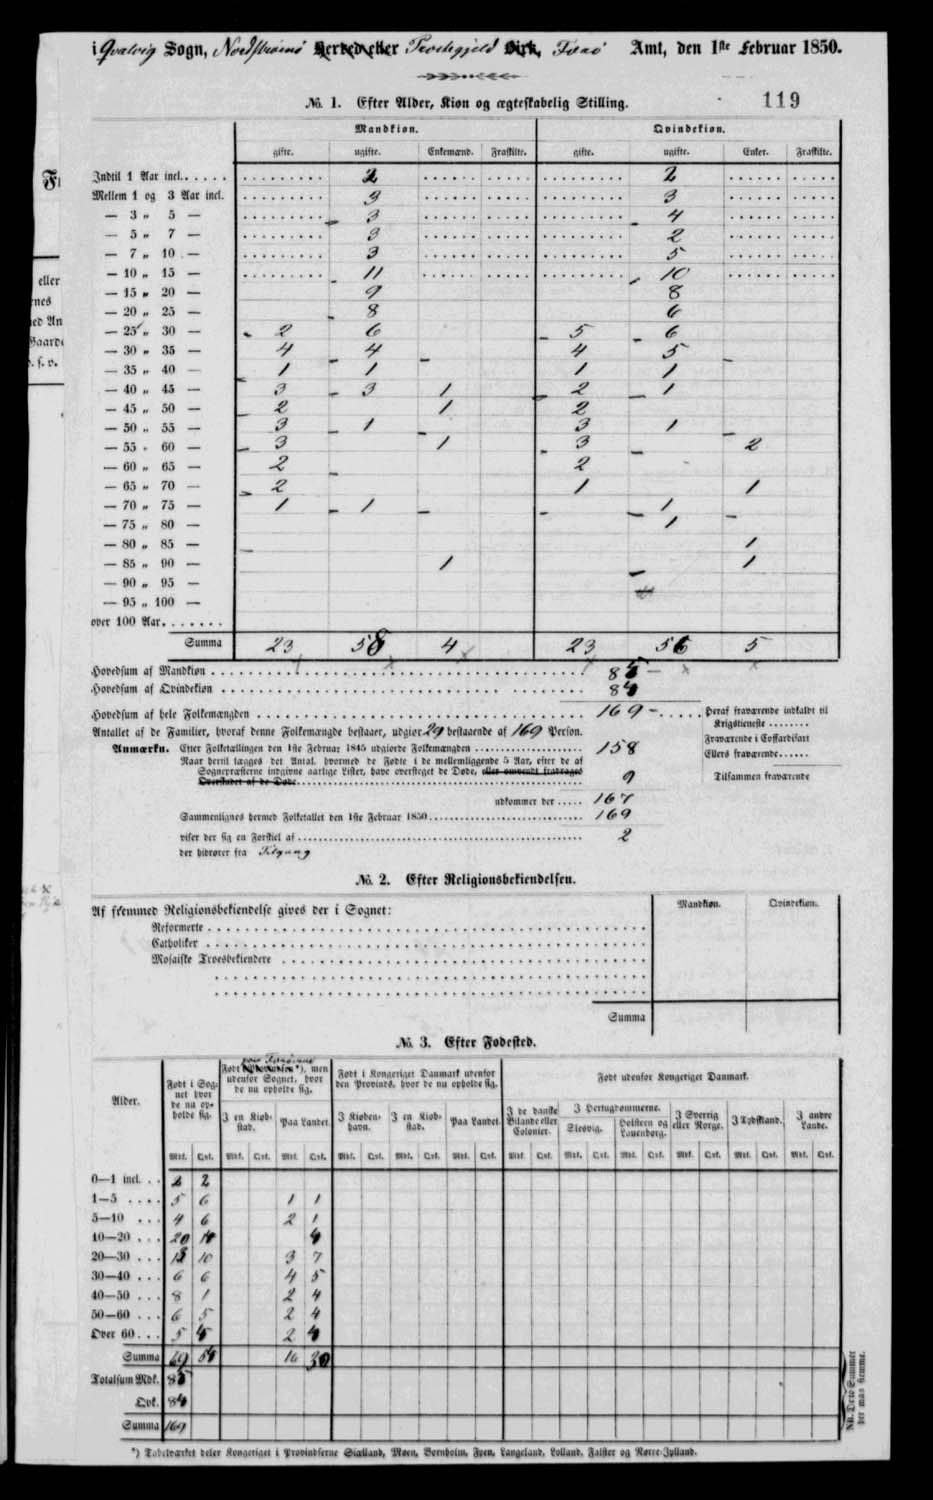 i Qvalvig Sogn, Nordstrømø Herred eller Provstegjeld Birk, Færø Amt, den 1ste Februar 1850.
No. 1. Efter Alder, Kiøn og ægteskabelig Stilling.
119
Mandkiøn. Qvindekiøn.
gifte. ugifte. Enkemænd. Fraskilte. gifte. ugifte. Enker. Fraskilte.
Indtil 1 Aar incl. 2 2
Mellem 1 og 3 Aar incl. 3 3
— 3 „ 5 — 3 4
— 5 „ 7 — 3 2
— 7 „ 10 — 3 5
— 10 „ 15 — 11 10
— 15 „ 20 — 9 8
— 20 „ 25 — 8 6
— 25 „ 30 — 2 6 5 6
— 30 „ 35 — 4 4 4 5
— 35 „ 40 — 1 1 1 1
— 40 „ 45 — 3 3 1 2 1
— 45 „ 50 — 2 1 2
— 50 „ 55 — 3 1 3 1
— 55 „ 60 — 3 1 3 2
— 60 „ 65 — 2 2
— 65 „ 70 — 2 1 1
— 70 „ 75 — 1 1 1
— 75 „ 80 — 1
— 80 „ 85 — 1
— 85 „ 90 — 1 1
— 90 „ 95 —
— 95 „ 100 —
over 100 Aar.
Summa 23 58 4 23 56 5
Hovedsum af Mandkiøn 85
Hovedsum af Qvindekiøn 84
Hovedsum af hele Folkemængden 169
Heraf fraværende indkaldt til
Krigstieneste
Antallet af de Familier, hvoraf denne Folkemængde bestaaer, udgiør 29 bestaaende af 169 Person.
Fraværende i Coffardifart
Anmærkn. Efter Folketællingen den 1ste Februar 1845 udgiorde Folkemængden 158
Ellers fraværende
Naar hertil lægges det Antal, hvormed de Fødte i de mellemliggende 5 Aar, efter de af
Sognepræsterne indgivne aarlige Lister, have oversteget de Døde, eller omvendt fradrages
Overskudet af de Døde 9
Tilsammen fraværende
udkommer der 167
Sammenlignes hermed Folketallet den 1ste Februar 1850 169
viser der sig en Forskiel af 2
der hidrører fra Tilgang
No. 2. Efter Religionsbekiendelsen.
Mandkiøn. Qvindekiøn.
Af fremmed Religionsbekiendelse gives der i Sognet:
Reformerte
Catholiker
Mosaiske Troesbekiendere
Summa
No. 3. Efter Fødested.
Alder.
Født i Sognet
hvor
de nu opholde
sig.
paa Færøerne
Født i Provindsen*), men
udenfor Sognet, hvor
de nu opholde sig.
Født i Kongeriget Danmark udenfor
den Provinds, hvor de nu opholde sig.
Født udenfor Kongeriget Danmark.
I en Kiøbstad.
Paa Landet.
I Kiøbenhavn.
I en Kiøbstad.
Paa Landet.
I de danske
Bilande eller
Colonier.
I Hertugdømmerne.
Slesvig.
Holsteen og
Lauenborg.
I Sverrig
eller Norge.
I Tydskland.
I andre
Lande.
Mdk. Qvk. Mdk. Qvk. Mdk. Qvk. Mdk. Qvk. Mdk. Qvk. Mdk. Qvk. Mdk. Qvk. Mdk. Qvk. Mdk. Qvk. Mdk. Qvk. Mdk. Qvk. Mdk. Qvk.
0—1 incl. 2 2
1—5 5 6 1 1
5—10 4 6 2 1
10—20 20 14 4
20—30 13 10 3 7
30—40 6 6 4 5
40—50 8 1 2 4
50—60 6 5 2 4
Over 60 5 4 2 4
Summa 69 54 16 30
Totalsum Mdk. 85
Qvk. 84
Summa 169
NB. Disse Summer
der maa stemme.
*) Tabelværket deler Kongeriget i Provindserne Siælland, Møen, Bornholm, Fyen, Langeland, Lolland, Falster og Nørre-Jylland.